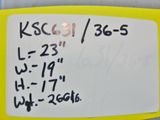 KSC631/36-5
L=23"
W.-19"
H.-17"
Wgt.-266 lb.